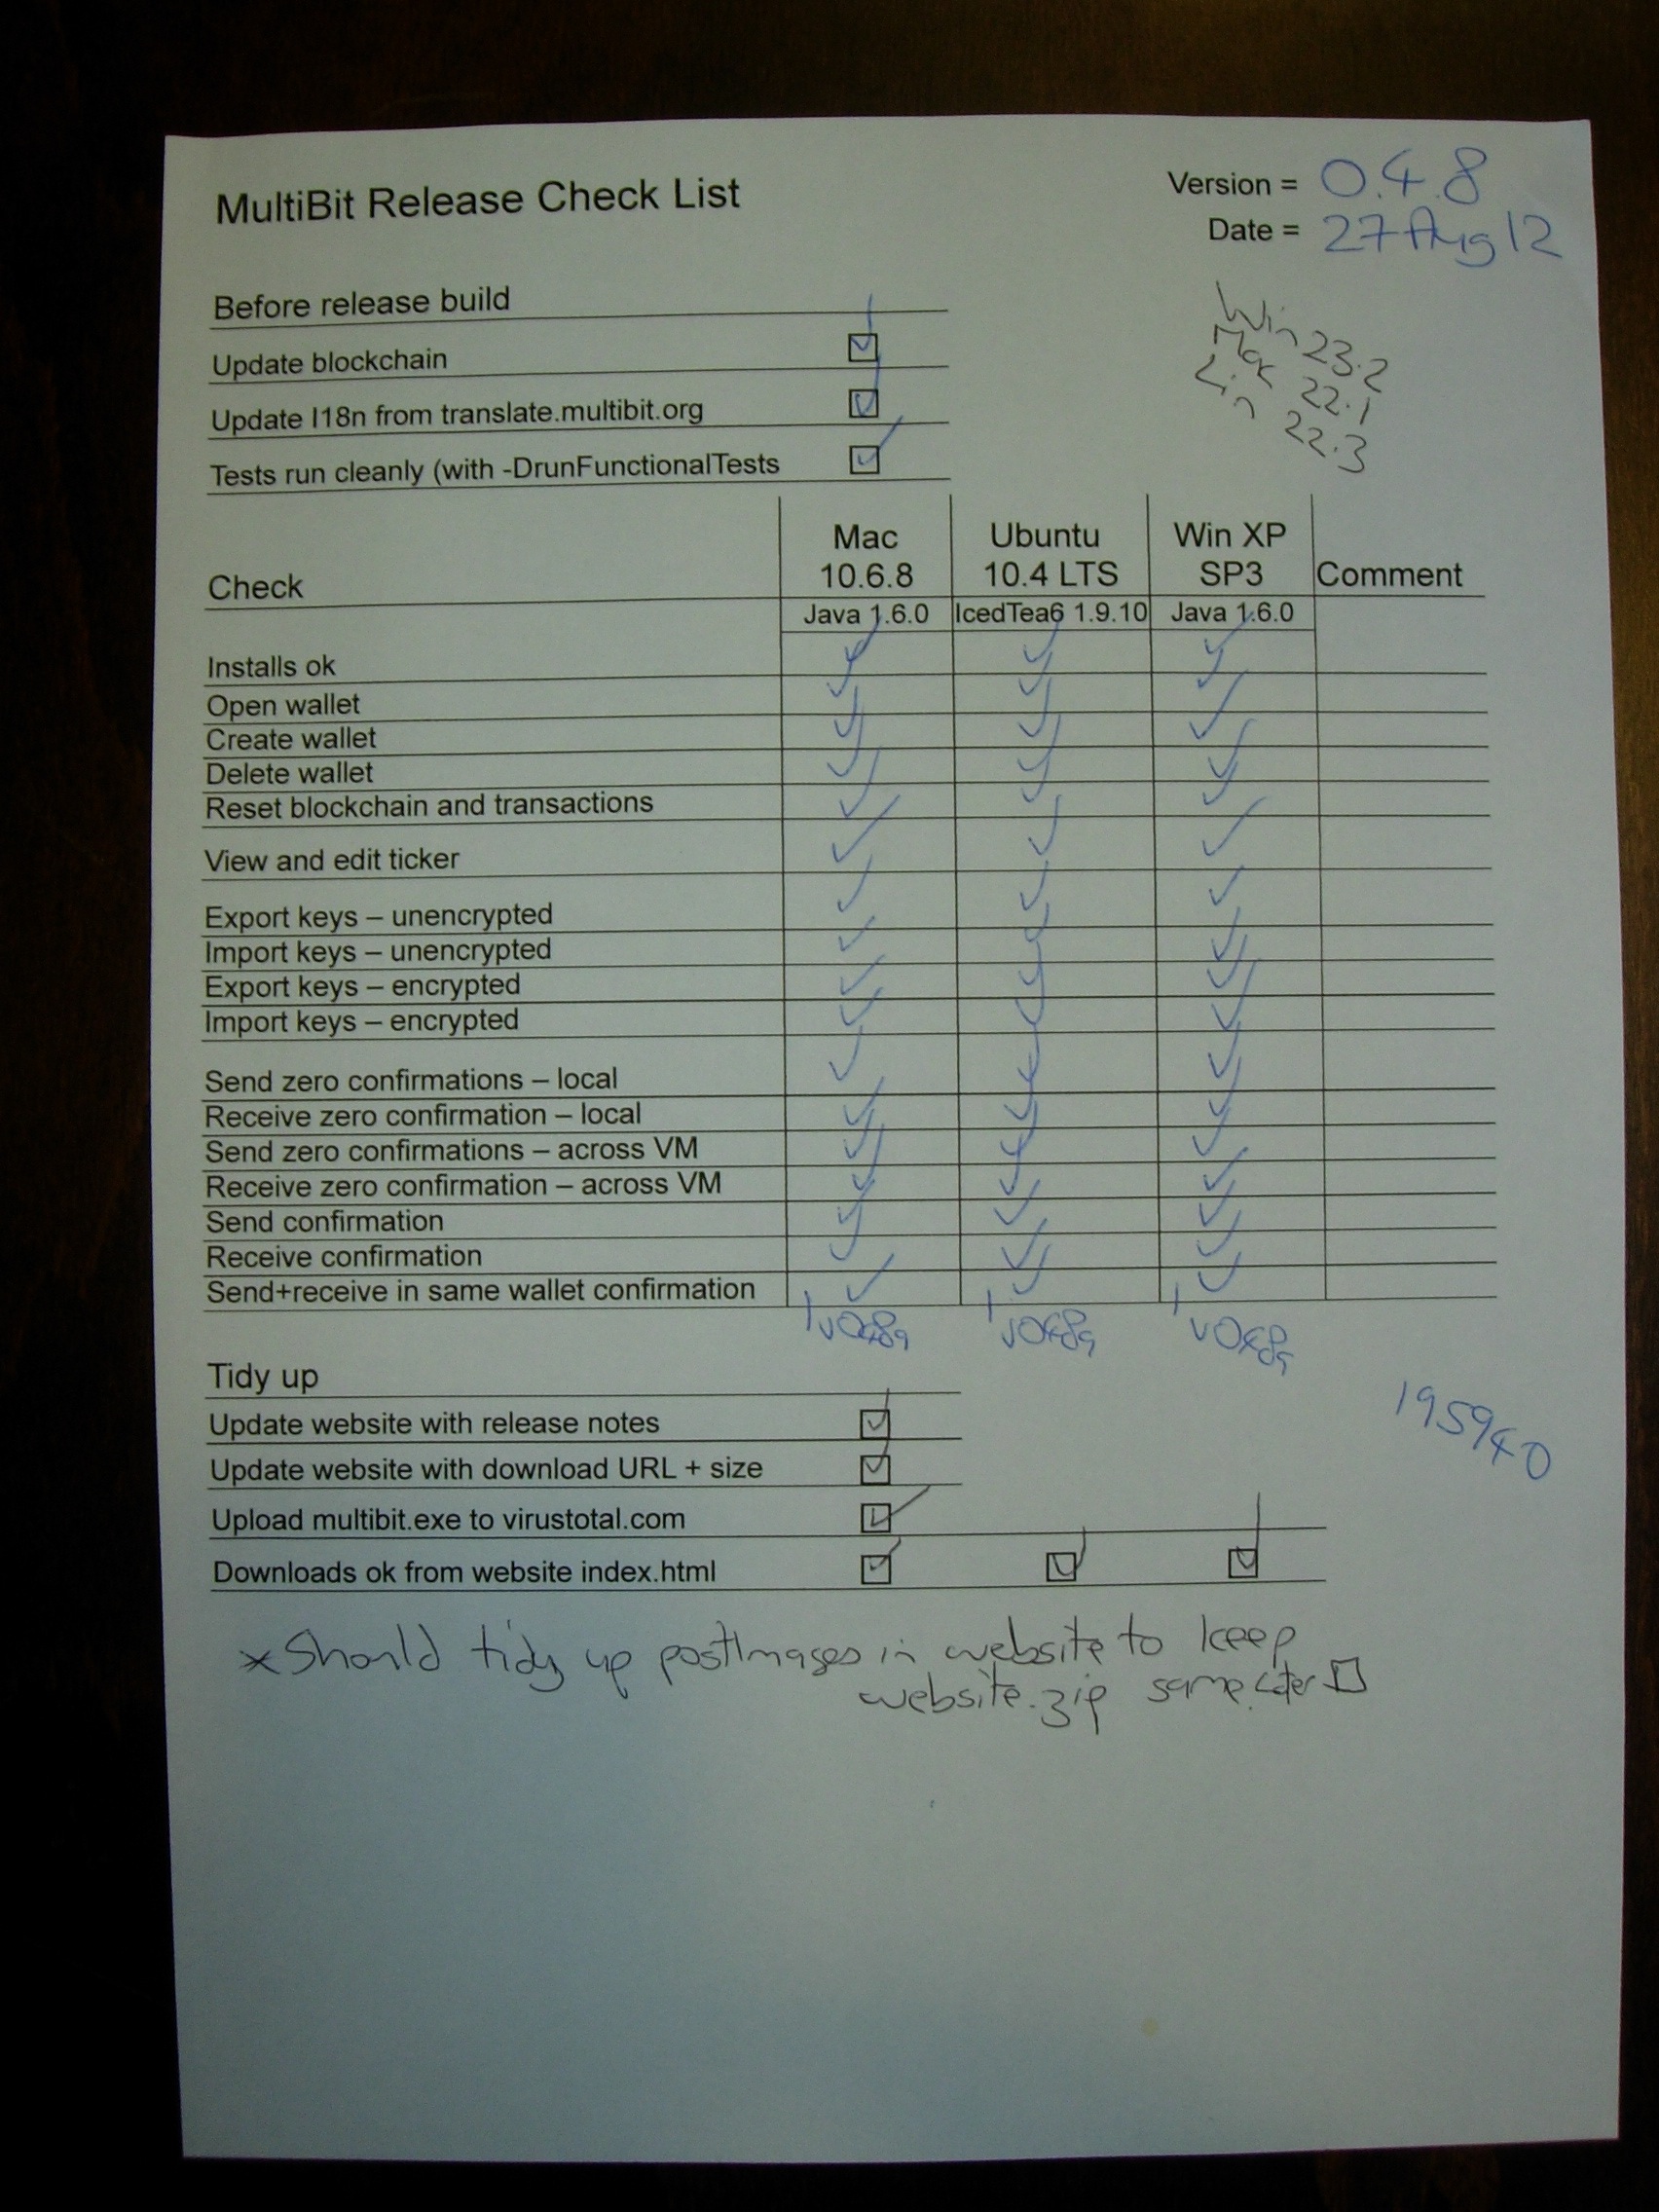 MultiBit Release Check List
Version = 0.4.8
Date = 27 Aug 12
Before release build
Win 23.2
Mac 22.1
Lin 22.3
Update blockchain
Update I18n from translate.multibit.org
Tests run cleanly (with -DrunFunctionalTests
Mac Ubuntu Win XP
Check 10.6.8 10.4 LTS SP3 Comment
Java 1.6.0 IcedTea6 1.9.10 Java 1.6.0
Installs ok
Open wallet
Create wallet
Delete wallet
Reset blockchain and transactions
View and edit ticker
Export keys – unencrypted
Import keys – unencrypted
Export keys – encrypted
Import keys – encrypted
Send zero confirmations – local
Receive zero confirmation – local
Send zero confirmations – across VM
Receive zero confirmation – across VM
Send confirmation
Receive confirmation
Send+receive in same wallet confirmation
Tidy up
195940
Update website with release notes
Update website with download URL + size
Upload multibit.exe to virustotal.com
Downloads ok from website index.html
*Should tidy up postImages in website to keep
website.zip same